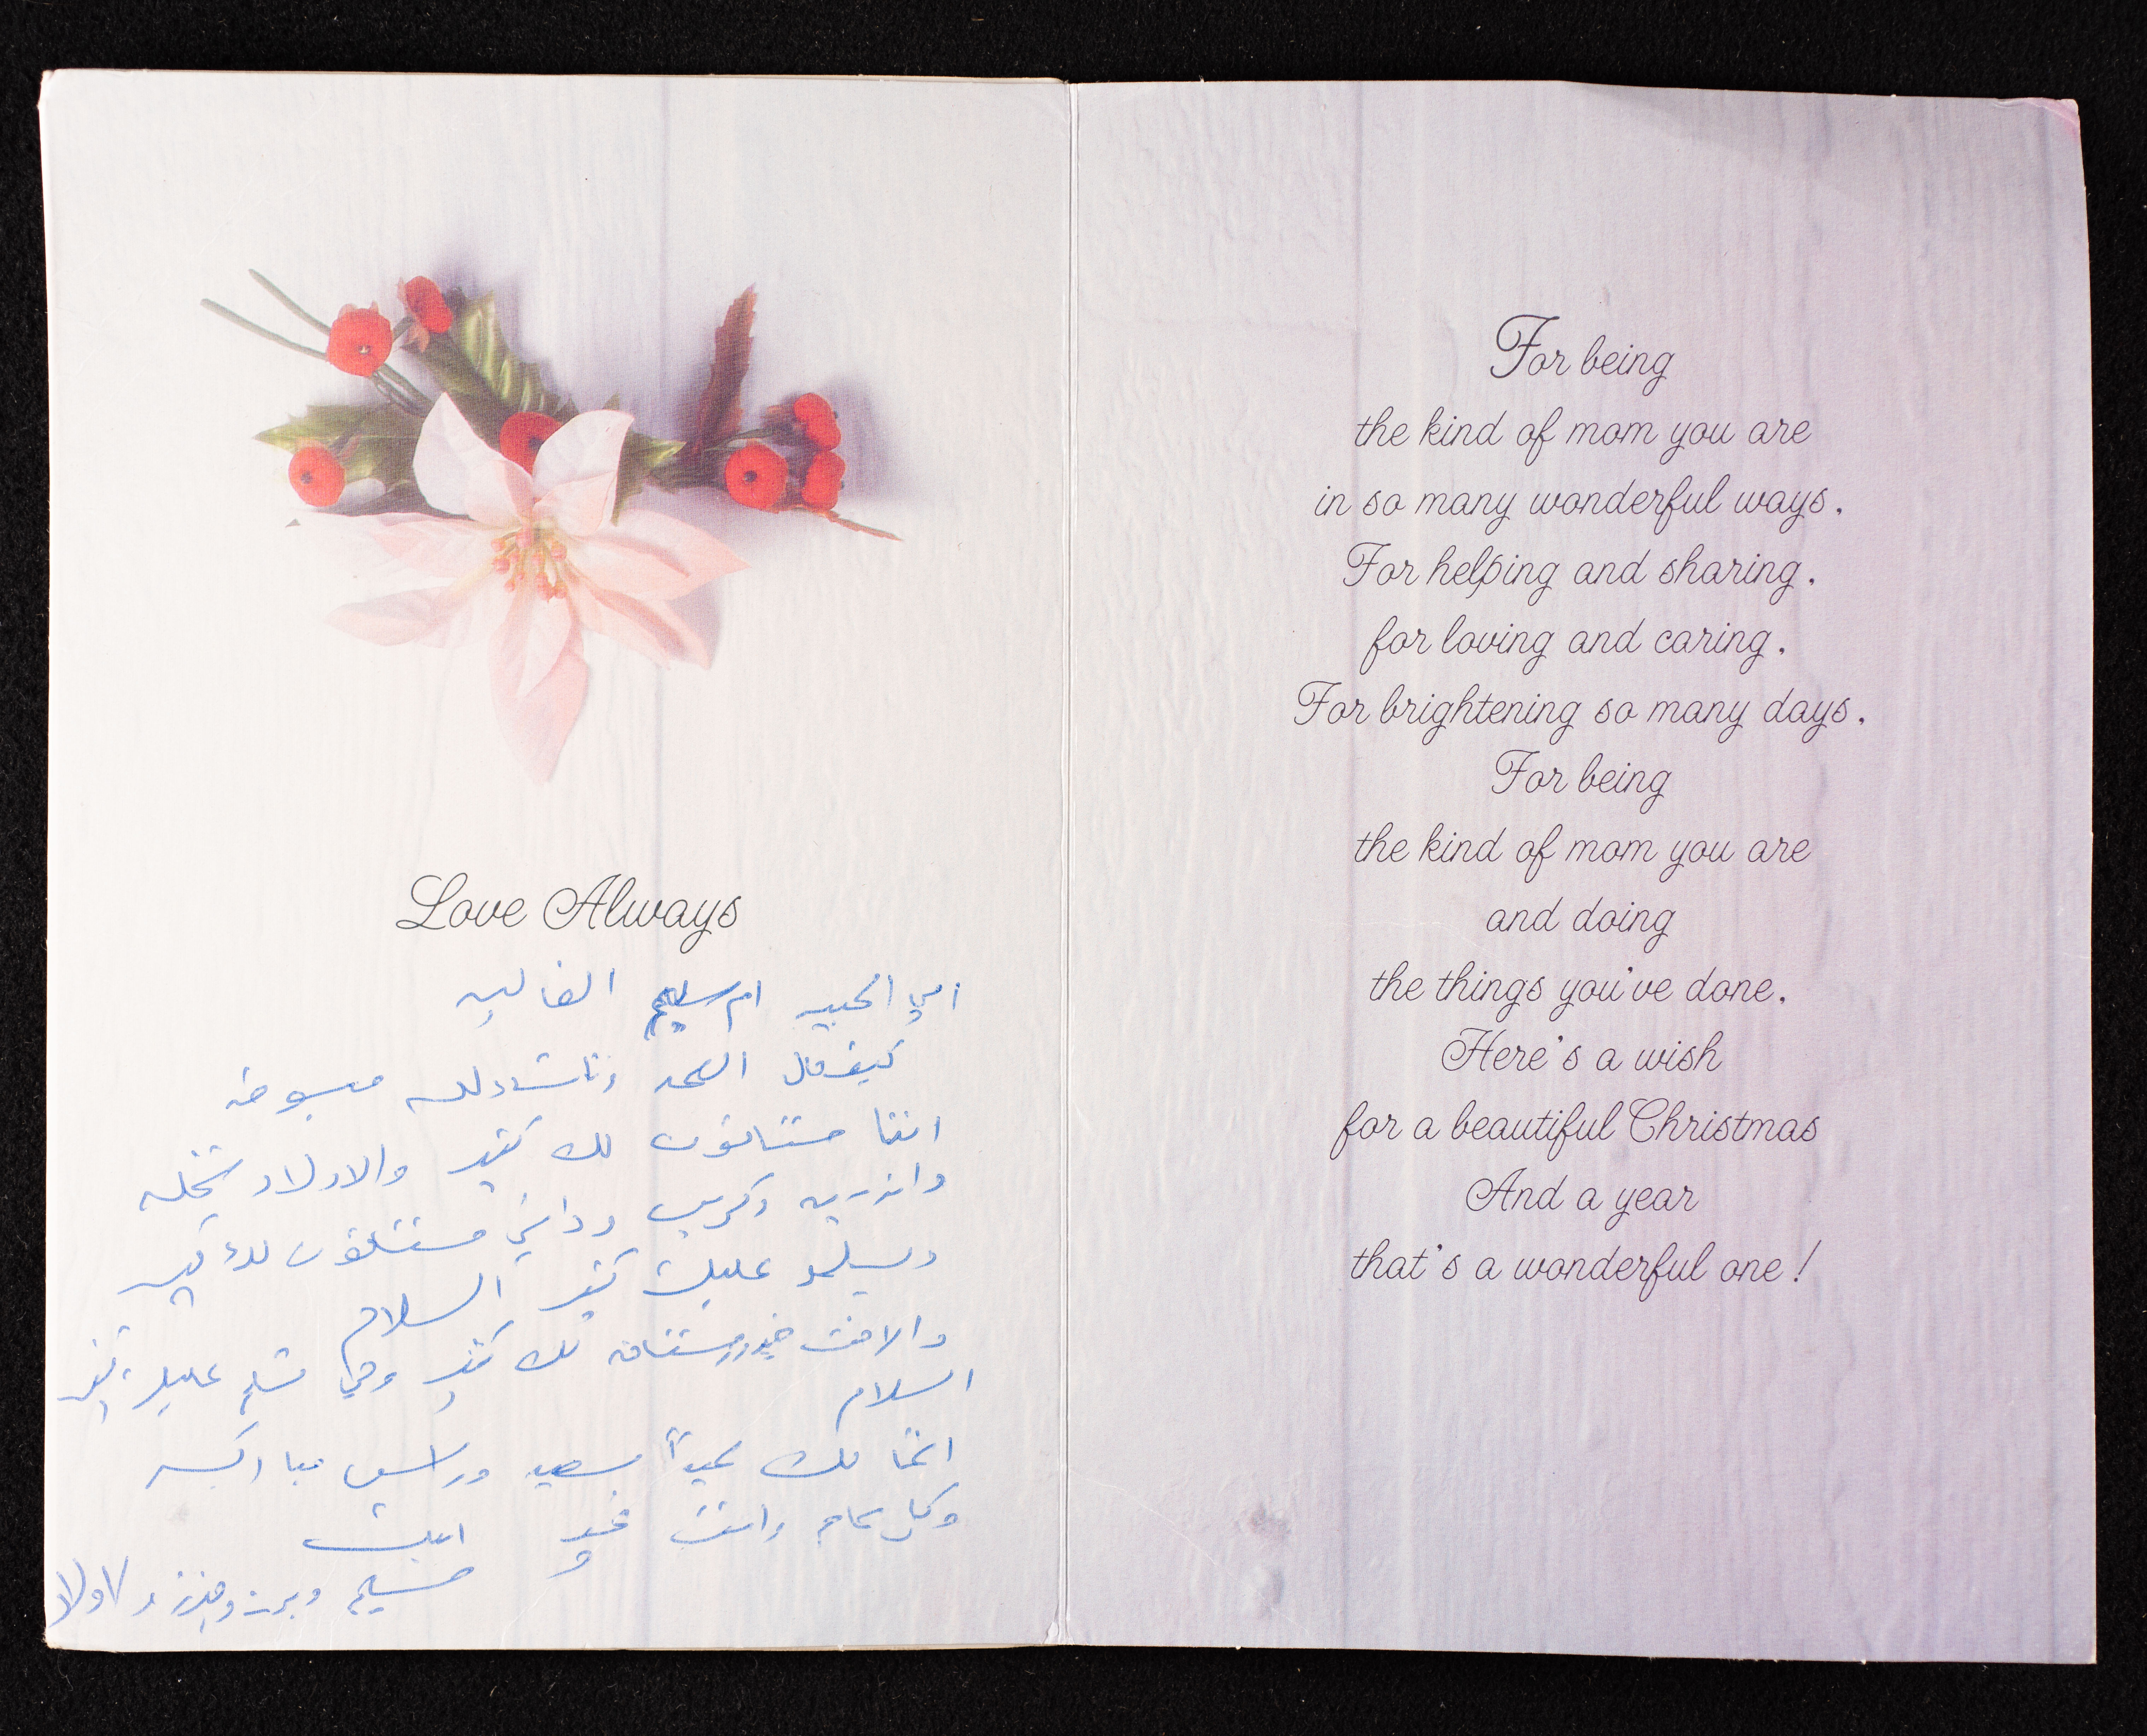 Love Always
امي الحبيبه ام سليم الغاليه
كيف حال الصحه انشاءالله مبسوطه
اننا مشتاقون لك كثير والاولاد
واندريه وكريس وداني مشتاقون لك كثير
ويسلمو عليك كثير السلام
والاخت مشتاقه لك كثير وهي تسلم عليك كثير
السلام
اتمنا لك عيداً سعيد وراس مباركه
وكل عام وانت بخير
For being
the kind of mom you are
in so many wonderful ways,
For helping and sharing,
for loving and caring,
For brightening so many days,
For being
the kind of mom you are
and doing
the things you've done,
Here's a wish
for a beautiful Christmas
And a year
that's a wonderful one!